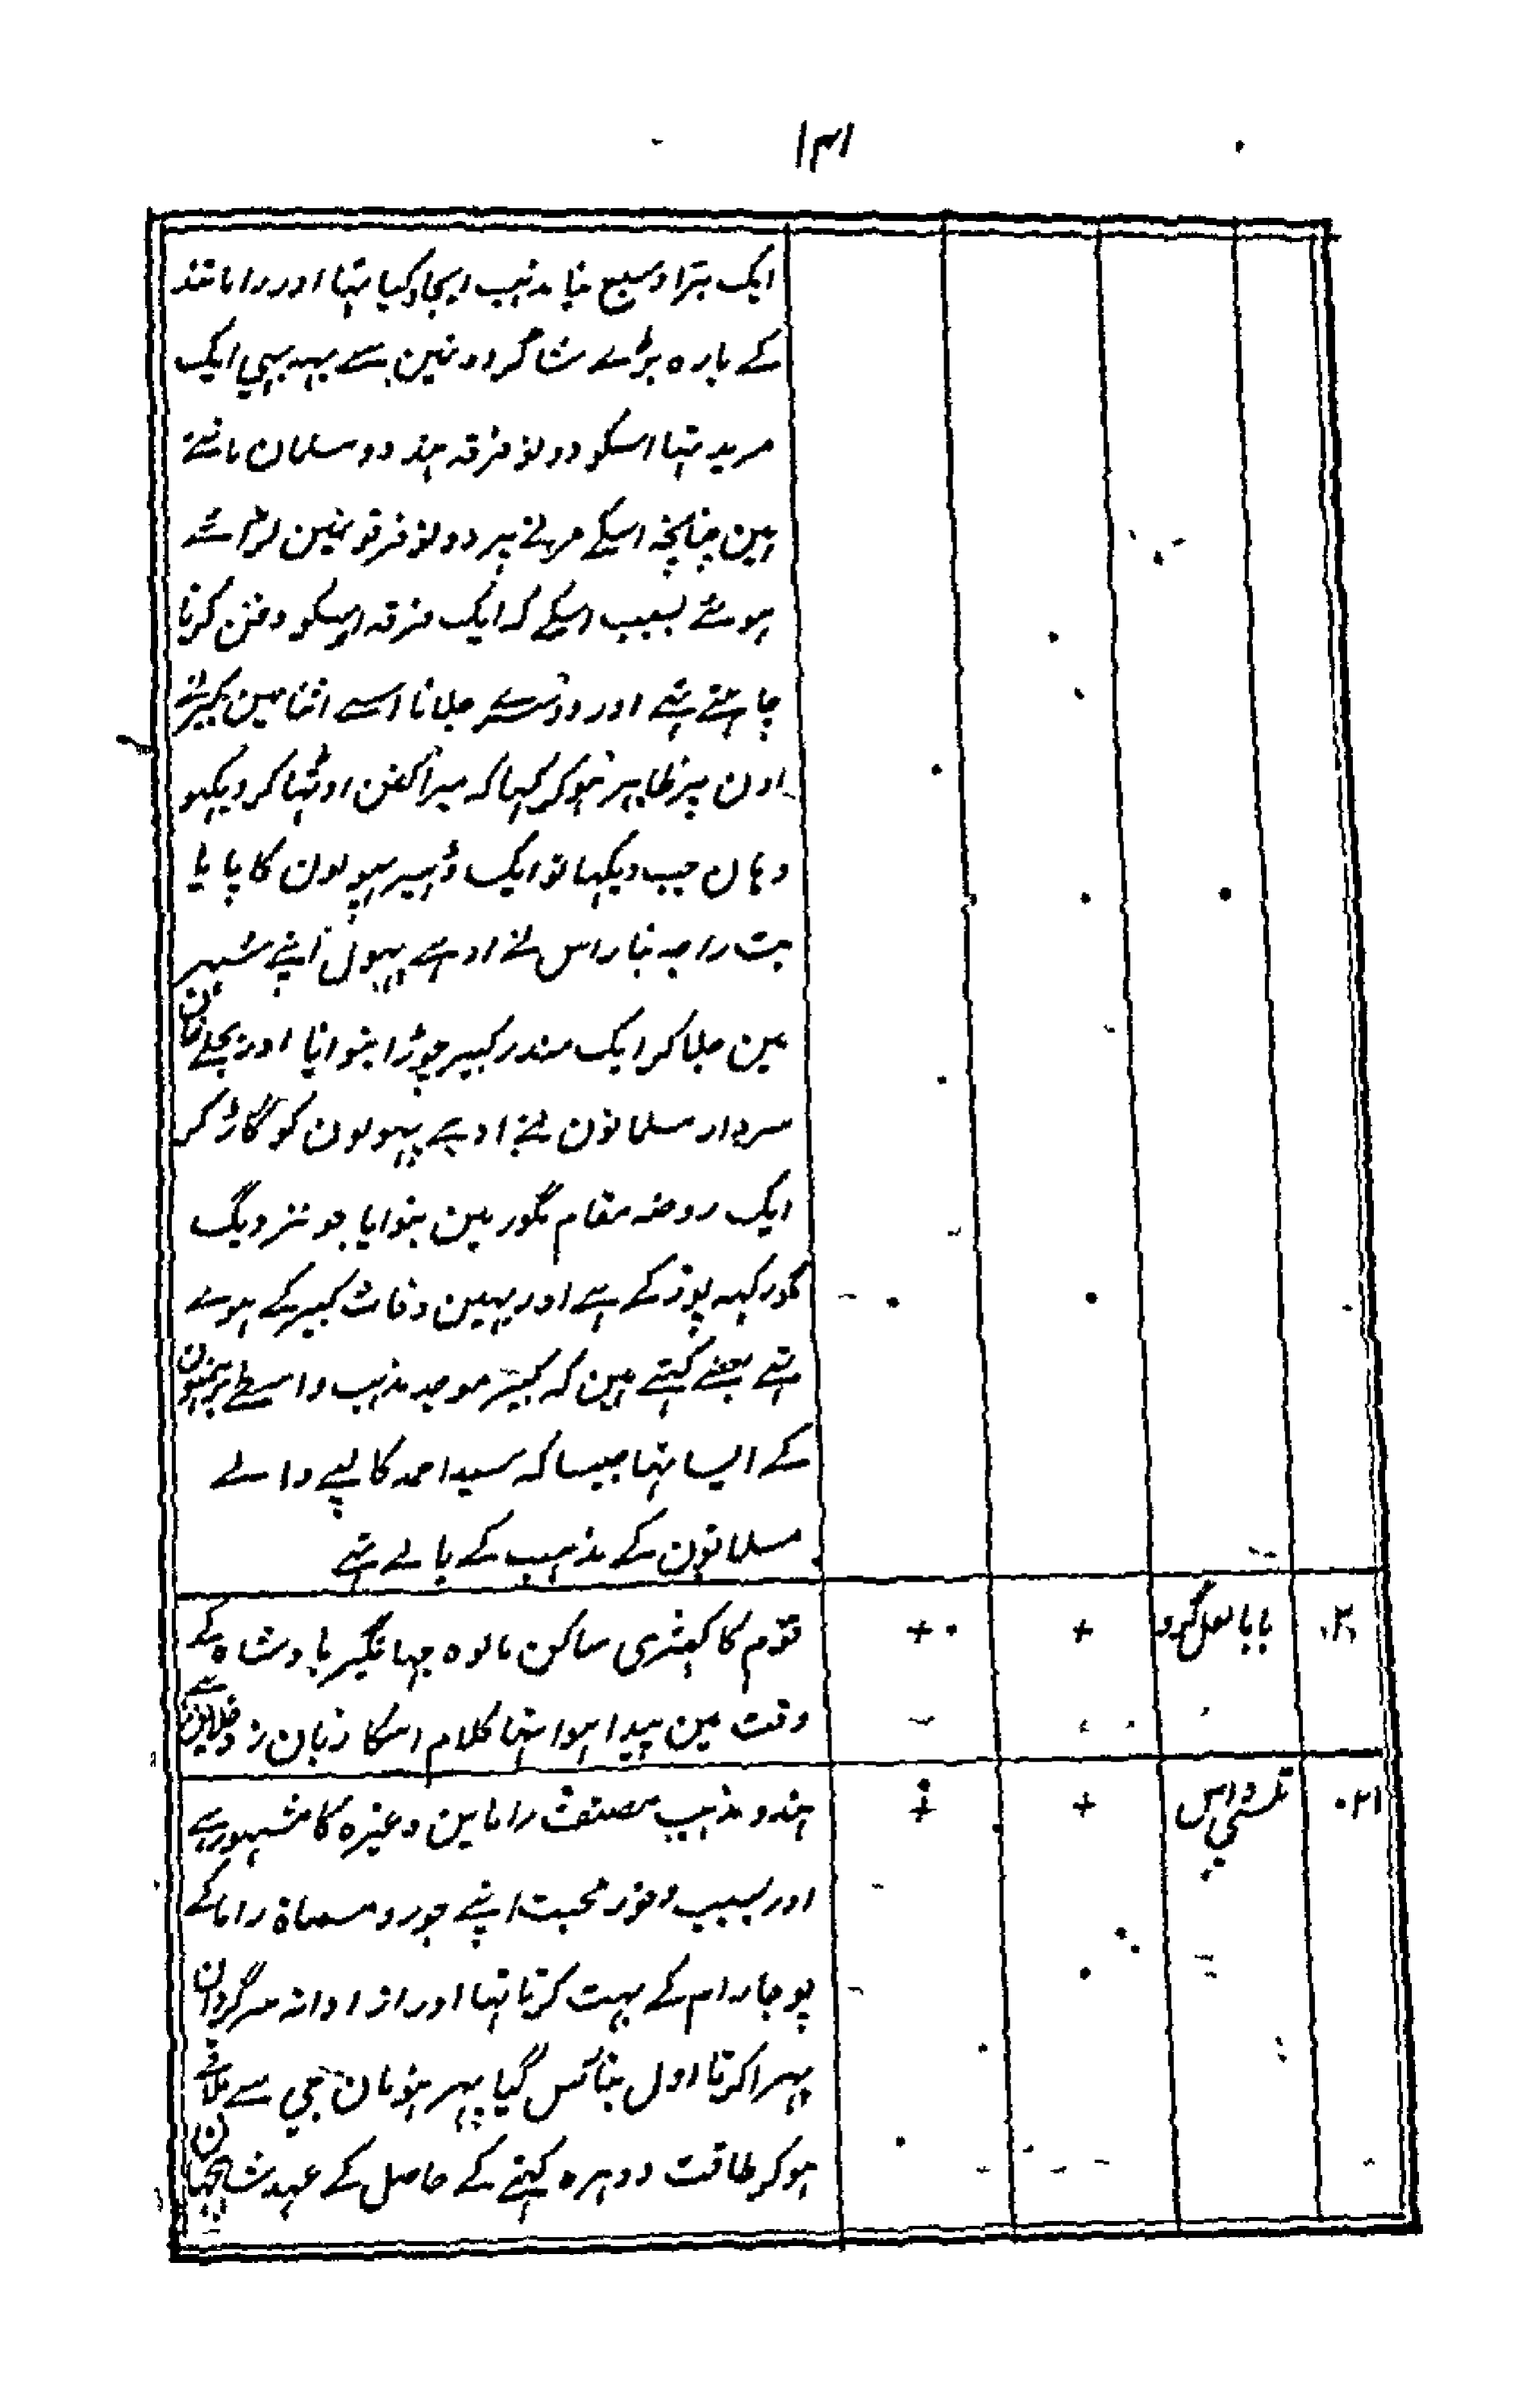 ۱۳۱
ایک بڑا وسیع نیا مذہب ایجاد کیا تہا اور رامانند
کے بارہ بڑے شاگردونمین سے یہہ بہی ایک
مرید تہا اسکو دونو فرقہ ہندو و مسلمان مانتے
ہین چنانچہ اسکے مرنے پر دونو فرقونمین لڑائے
ہوئے بسبب اسکے کہ ایک فرقہ اسکو دفن کرنا
چاہتے تہے اور دوسرے جلانا اسے اثنا مین کبیر نے
اون پر ظاہر ہوکر کہا کہ میرا کفن اوٹہا کر دیکہو
وہان جب دیکہا تو ایک ڈہیر پہولون کا پایا
تب راجہ بنارس نے ادہے پہول اپنے شہر
مین جلا کر ایک مندر کبیر چوڑا بنوایا اور بجلے خان
سردار مسلمانون نے ادہے پہولون کو گاڑ کر
ایک روضہ مقام مگور مین بنوایا جو نزدیگ
گورکہہ پور کے ہے اور یہین وفات کبیر کے ہوے
تہے بعضے کہتے ہین کہ کبیر موجد مذہب واسطے برہمنون
کے ایسا تہا جیسا کہ سید احمد کالپے والے
مسلمانون کے مذہب کے بانے تہے
۲۰ بابا لعل گرو + + قوم کا کہتری ساکن مالوہ جہانگیر بادشاہ کے
وقت مین پیدا ہوا تہا کلام اسکا زبان زد خلایق ہے
۲۱ تلسی داس + + ہندو مذہب مصنف راماین وغیرہ کا مشہور ہے
اور بسبب وفور محبت اپنے جورو مسماۃ راما کے
پوجا رام کے بہت کرتا تہا اور ازادانہ سرگردان
پہرا کرتا اول بنارس گیا پہر ہنومان جی سے ملاقے
ہوکر طاقت دوہرہ کہنے کے حاصل کے عہد شاہجہان